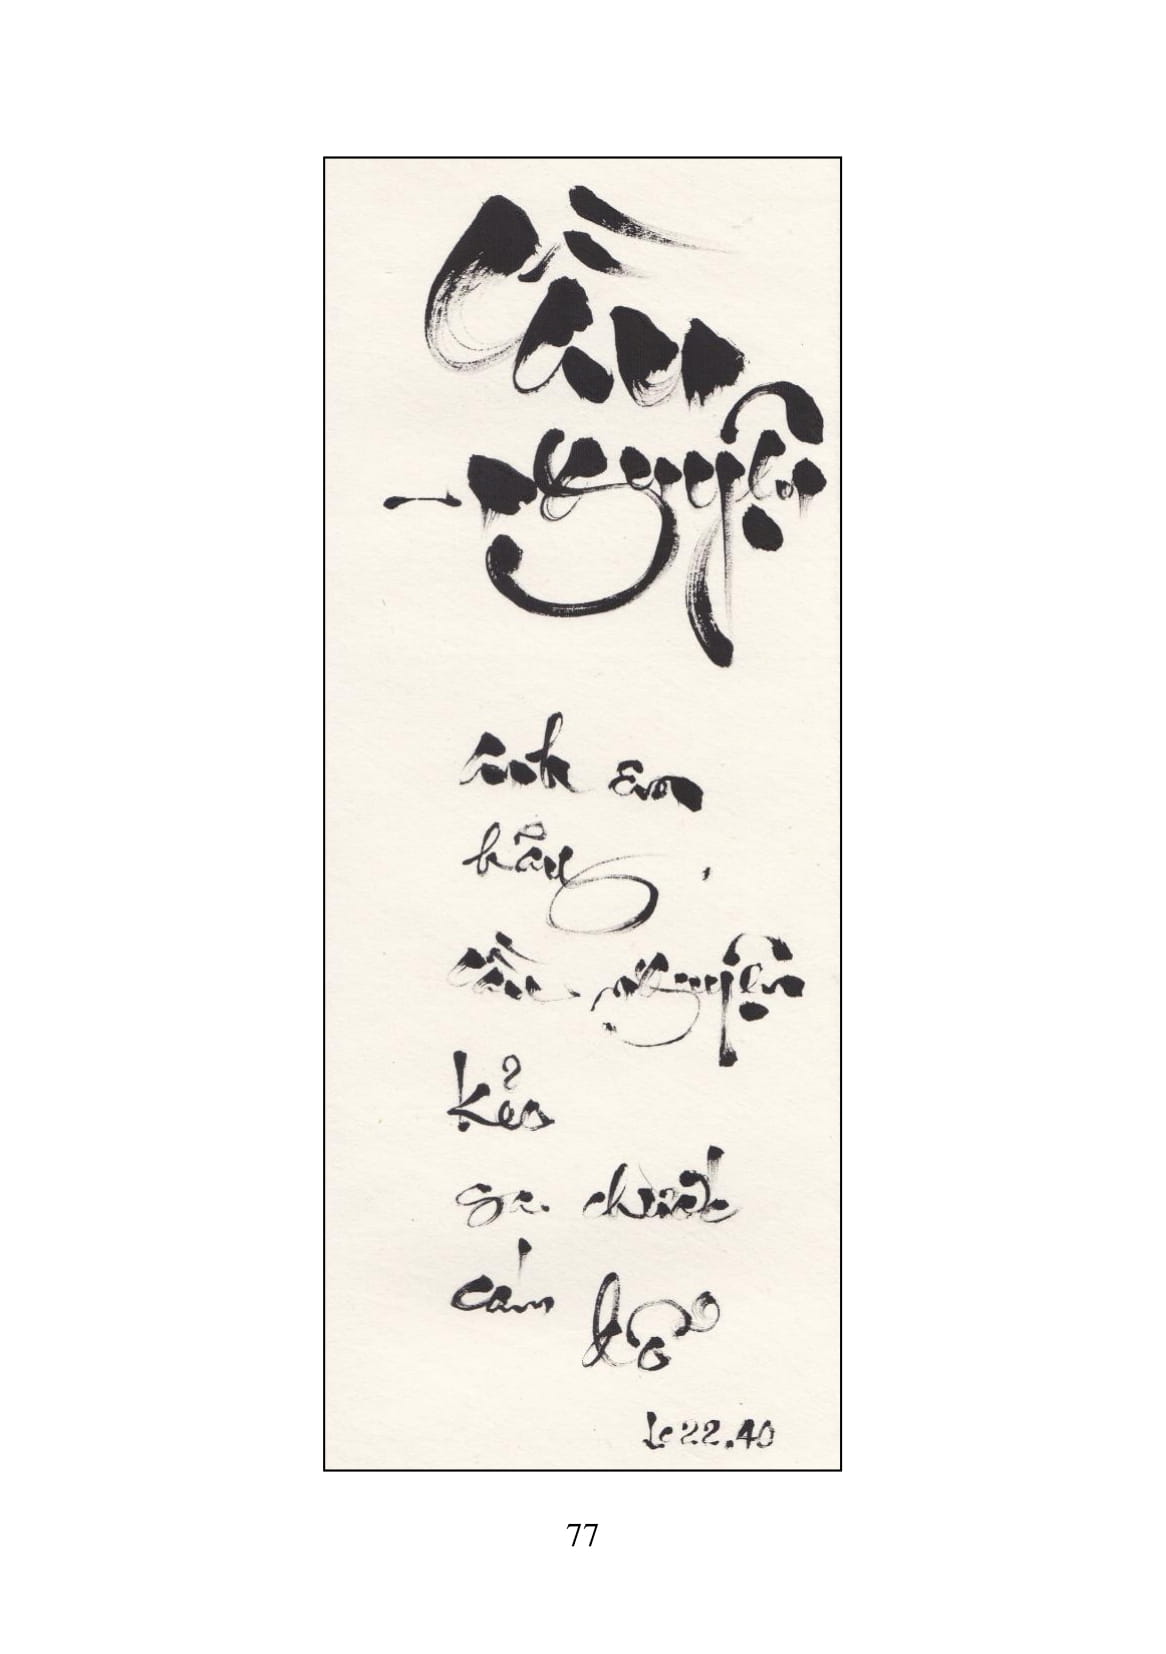 Cầu
nguyện
Anh em
hãy
cầu nguyện
kẻo
sa chước
cám dỗ
Lc 22.40
77